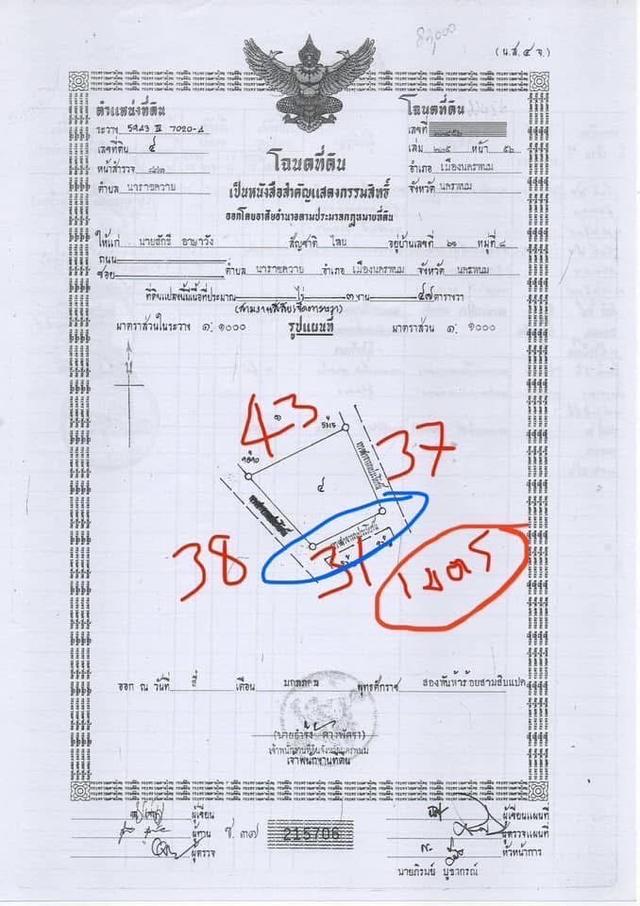 (น.ส.๔ จ.)
ตำแหน่งที่ดิน
ระวาง 5943 III 7020-4
เลขที่ดิน ๔
หน้าสำรวจ
ตำบล นาราชควาย
โฉนดที่ดิน
เลขที่
เล่ม ๒๓๕ หน้า ๕๒
อำเภอ เมืองนครพนม
จังหวัด นครพนม
โฉนดที่ดิน
เป็นหนังสือสำคัญแสดงกรรมสิทธิ์
ออกโดยอาศัยอำนาจตามประมวลกฎหมายที่ดิน
ให้แก่ สัญชาติ ไทย อยู่บ้านเลขที่ ๖๑ หมู่ที่ ๘
ถนน
ซอย ตำบล นาราชควาย อำเภอ เมืองนครพนม จังหวัด นครพนม
ที่ดินแปลงนี้มีเนื้อที่ประมาณ ไร่ ๓ งาน ๔๗ ตารางวา
(สามงานสี่สิบเจ็ดตารางวา)
มาตราส่วนในระวาง ๑: ๑๐๐๐ รูปแผนที่ มาตราส่วน ๑: ๑๐๐๐
43
37
๔
ทางสาธารณประโยชน์
ทางสาธารณประโยชน์
ทางสาธารณประโยชน์
38
31
เมตร
ออก ณ วันที่ สี่ เดือน มกราคม พุทธศักราช สองพันห้าร้อยสามสิบแปด
เจ้าพนักงานที่ดินจังหวัดนครพนม
เจ้าพนักงานที่ดิน
ผู้เขียน
ผู้ทาน
ผู้ตรวจ
ช.๓๗ 215706
ผู้เขียนแผนที่
ผู้ตรวจแผนที่
หัวหน้าการ
นายภิรมย์ บูชากรณ์